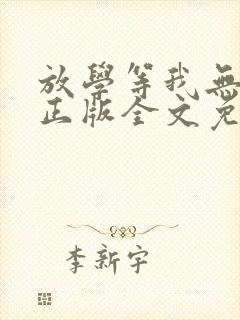 放學等我無
正版全文免
李新宇